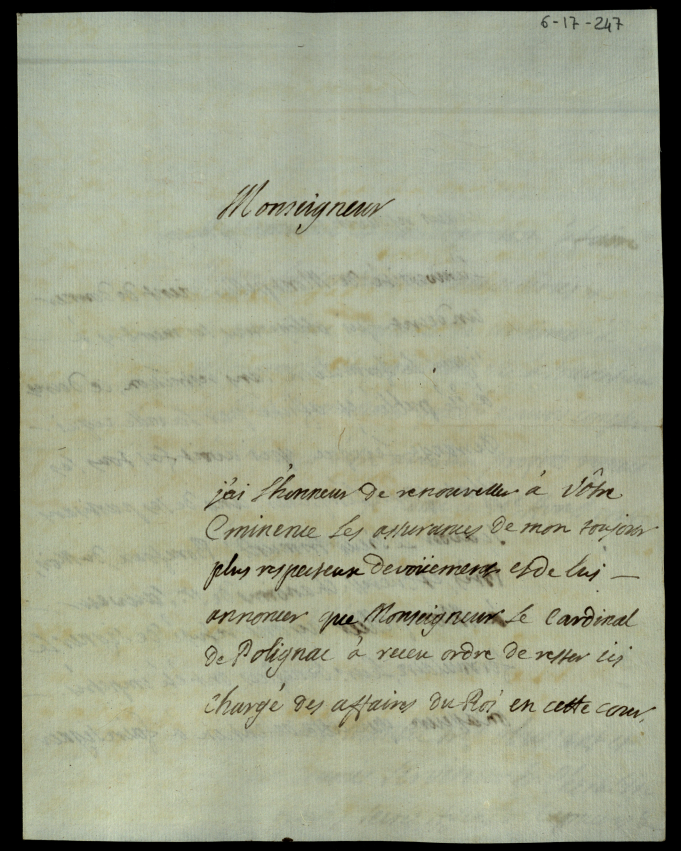 6-17-247
Monseigneur
j'ai l'honneur de renouveller à Vôtre
Eminence les assurances de mon toujours
plus respectueux devoüement et de lui
annoncer que Monseigneur le Cardinal
de Polignac a receu ordre de rester ici
Chargé des affaires du Roi en cette cour,